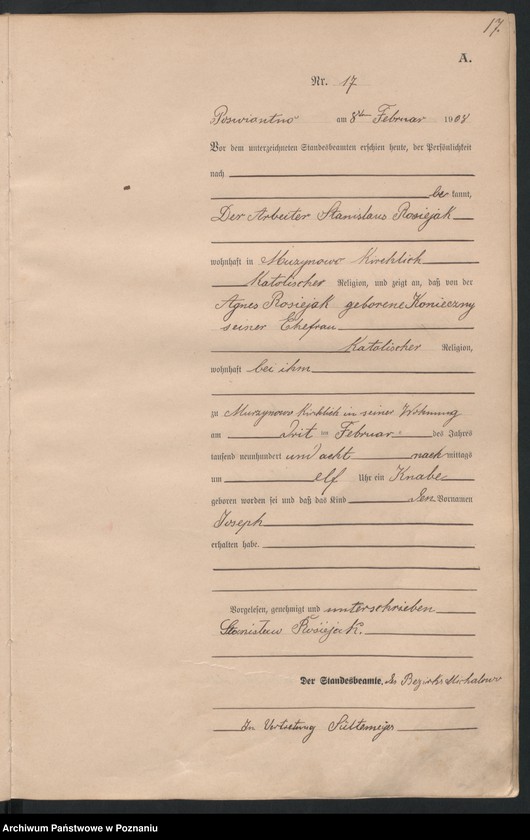 17.
A.
Nr. 17
Poswiantno am 8ten Februar 1908
Vor dem unterzeichneten Standesbeamten erschien heute, der Persönlichkeit
nach
be kannt,
Der Arbeiter Stanislaus Rosiejak
wohnhaft in Murzynowo Kirchlich
Katolischer Religion, und zeigt an, daß von der
Agnes Rosiejak geborene Konieczny
seiner Ehefrau
Katolischer Religion,
wohnhaft bei ihm
zu Murzynowo Kirchlich in seiner Wohnung
am Februar des Jahres
tausend neunhundert und acht nach mittags
um elf Uhr ein Knabe
geboren worden sei und daß das Kind den Vornamen
Joseph
erhalten habe.
Vorgelesen, genehmigt und unterschrieben
Stanisław Rosiejak.
Der Standesbeamte, des Bezirks
In Vertretung Sültemeyer
Archiwum Państwowe w Poznaniu